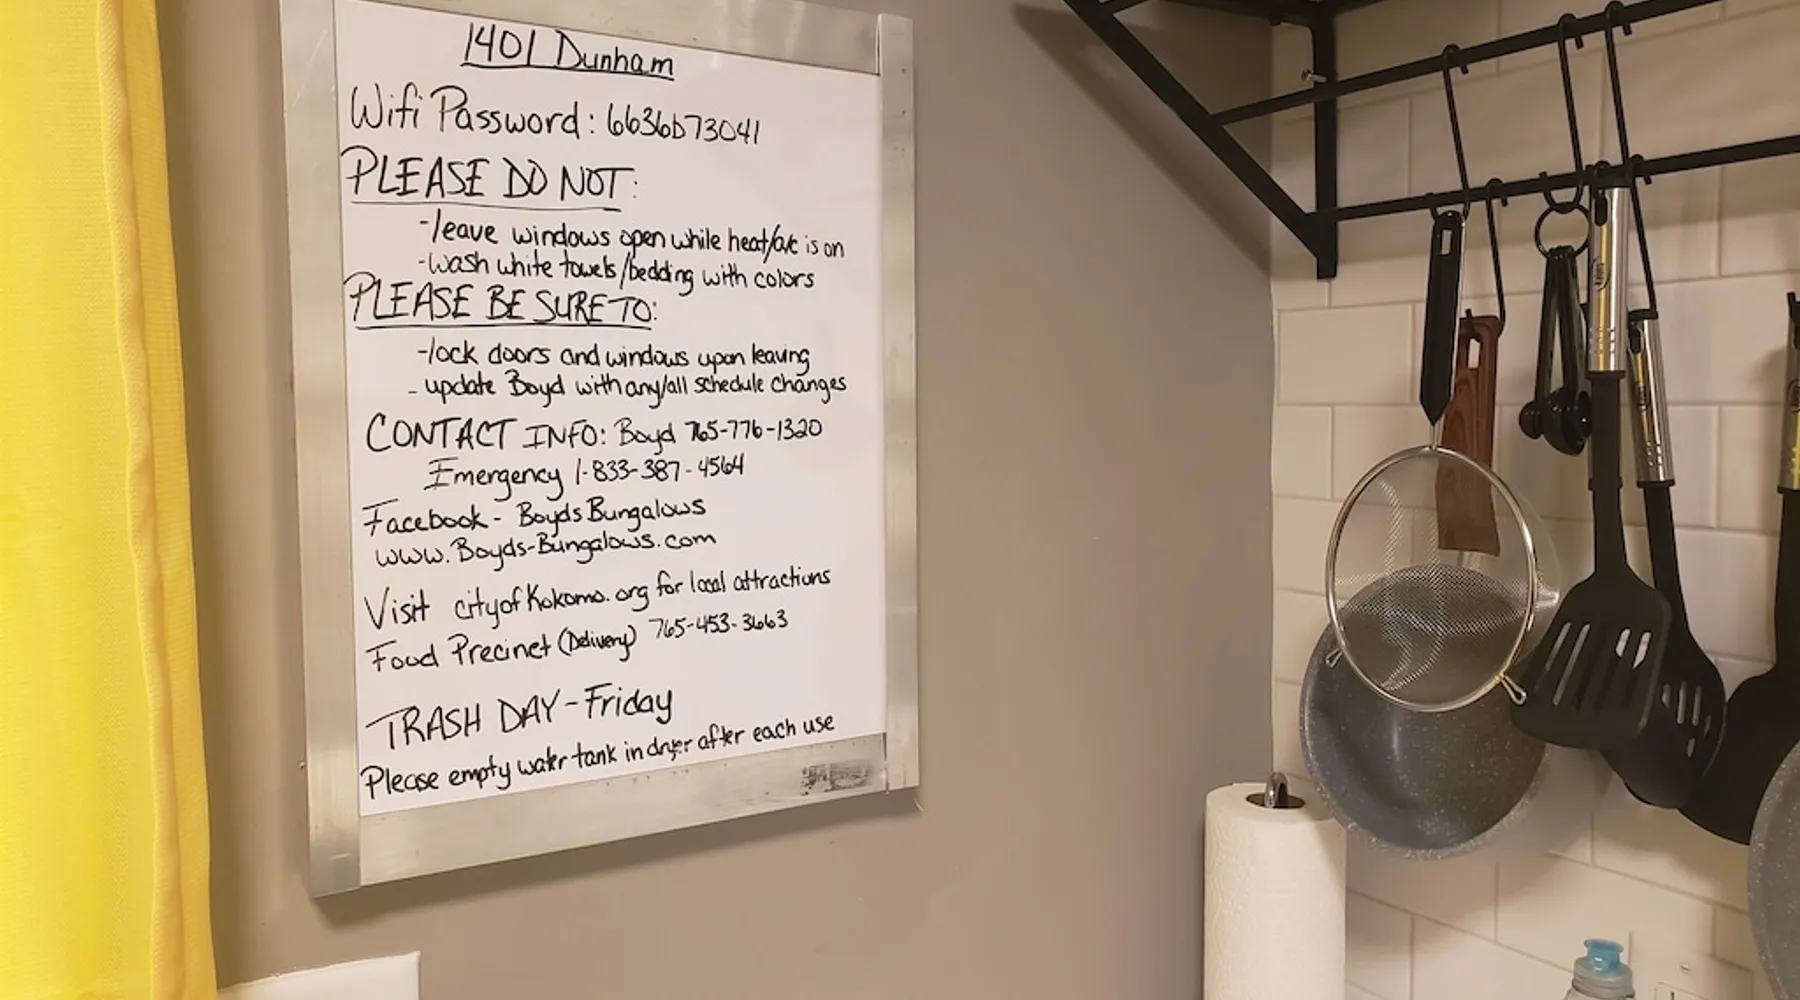 1401 Dunham
Wifi Password: 6636b73041
PLEASE DO NOT:
-leave windows open while heat/ac is on
-wash white towels/bedding with colors
PLEASE BE SURE TO:
-lock doors and windows upon leaving
- update Boyd with any/all schedule changes
CONTACT INFO: Boyd 765-776-1320
Emergency 1-833-387-4564
Facebook - Boyds Bungalows
www.Boyds-Bungalows.com
Visit cityofKokomo.org for local attractions
Food Precinct (Delivery) 765-453-3663
TRASH DAY - Friday
Please empty water tank in dryer after each use